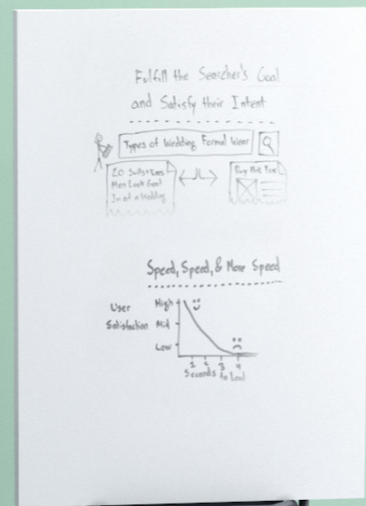 Fulfill the Searcher's Goal
and Satisfy their Intent
Types of Wedding Formal Wear
20 Suits
Men Look Good
In at a Wedding
Buy this
Speed, Speed, & More Speed
User
Satisfaction
High
Mid
Low
1 2 3 4
Seconds to Load